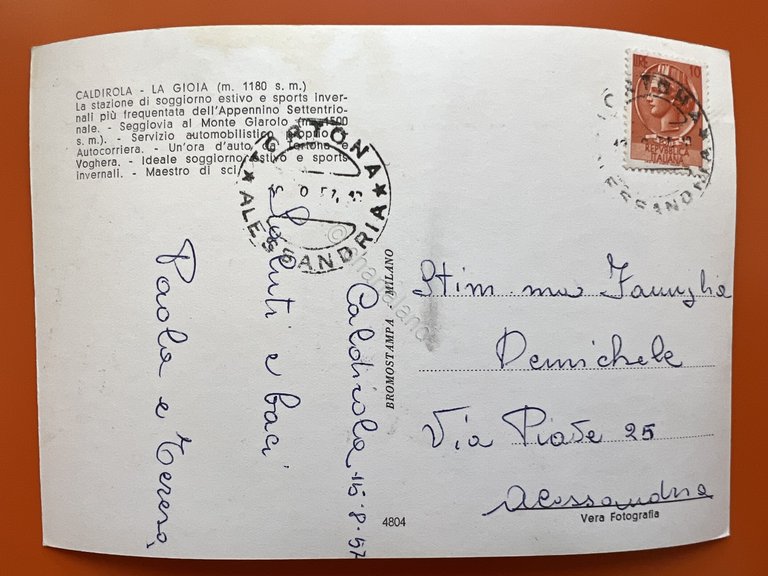 CALDIROLA - LA GIOIA (m. 1180 s. m.)
La stazione di soggiorno estivo e sports inver-
nali più frequentata dell'Appennino Settentrio-
nale. - Seggiovia al Monte Giarolo (m. 1500
s. m.). - Servizio automobilistico proprio e
Autocorriera. - Un'ora d'auto da Tortona e
Voghera. - Ideale soggiorno estivo e sports
invernali. - Maestro di sci.
TORTONA
ALESSANDRIA
LIRE 10
REPVBBLICA
ITALIANA
TORTONA
ALESSANDRIA
Caldirola 15-8-57
Saluti e baci
Paola e Teresa
BROMOSTAMPA - MILANO
Stim.ma Famiglia
Demichele
Via Piave 25
Alessandria
4804
Vera Fotografia